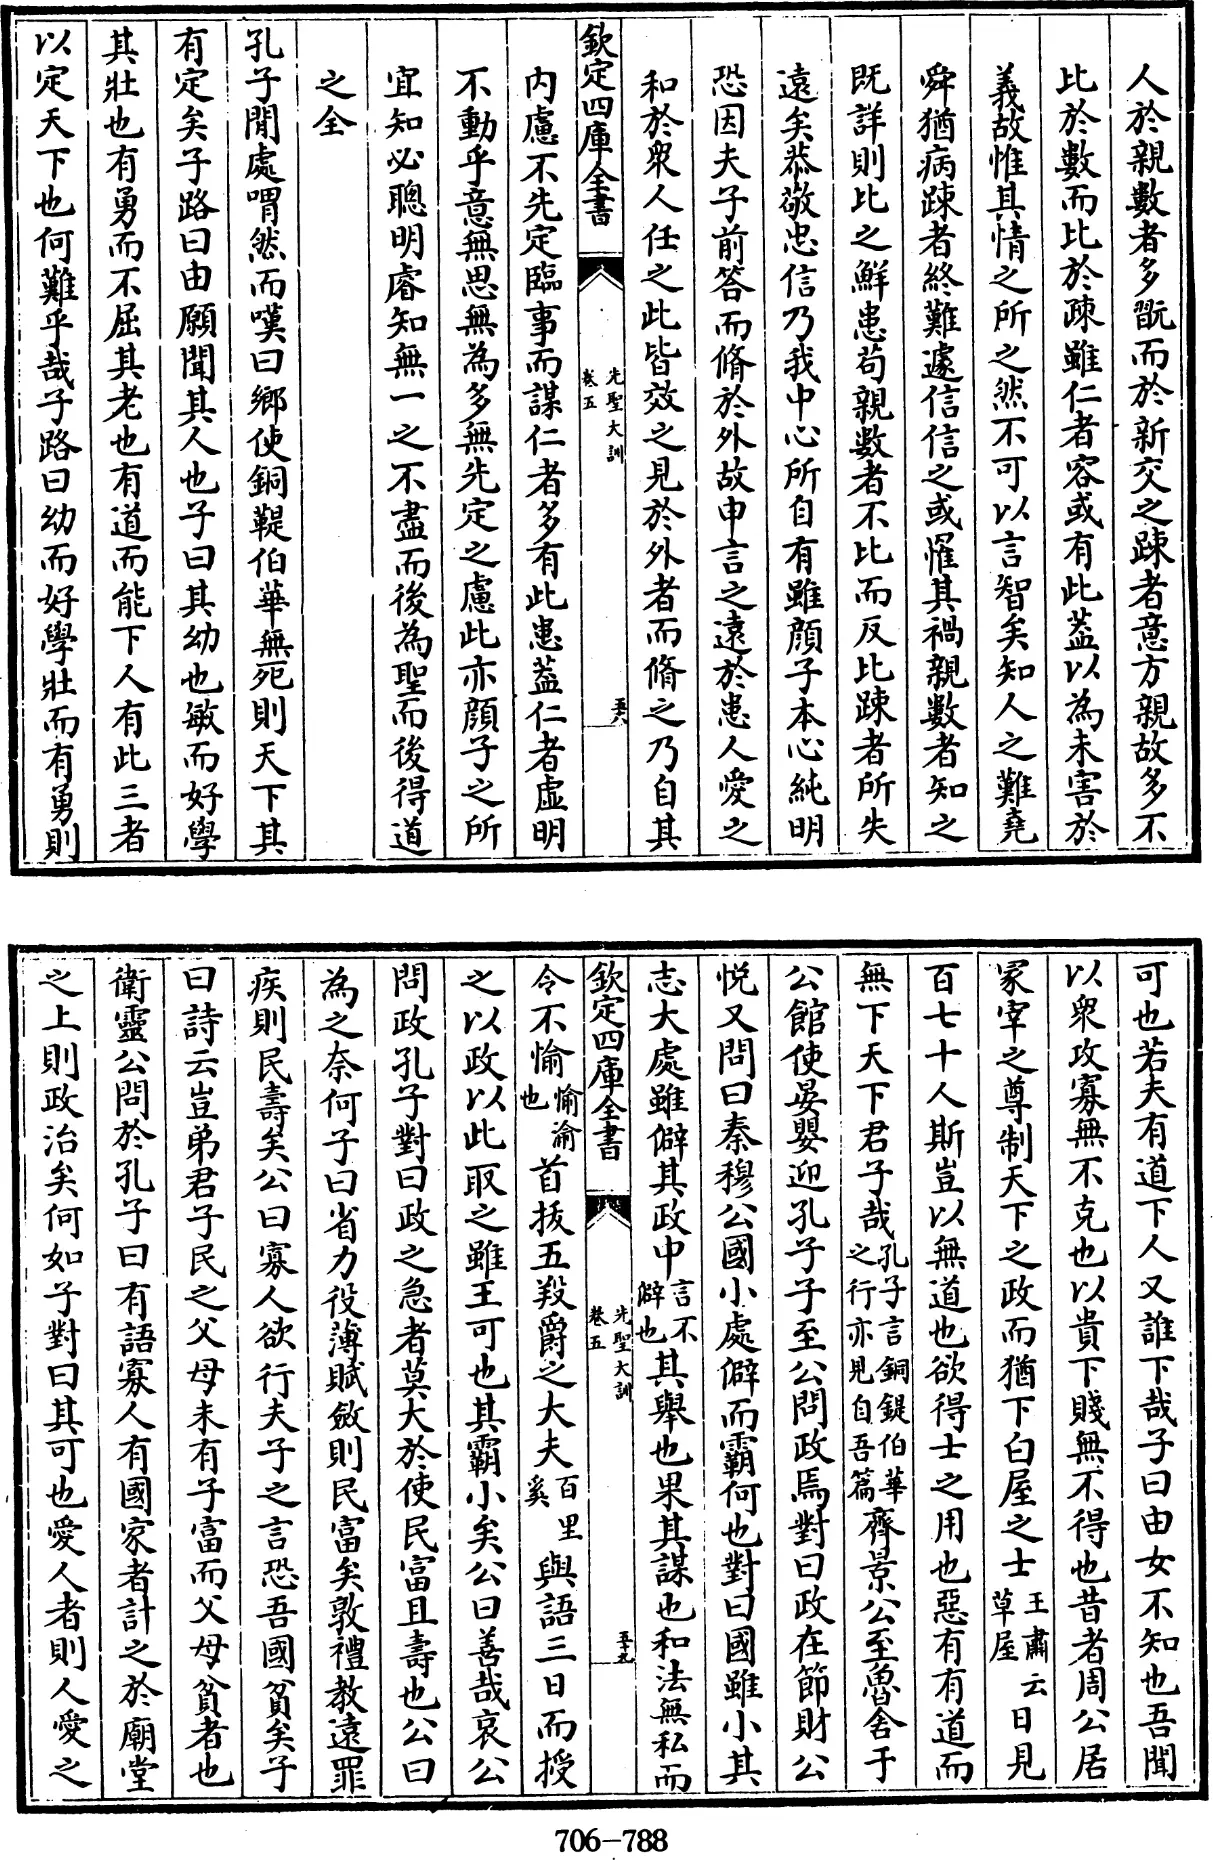 人於親數者多翫而於新交之疎者意方親故多不
比於數而比於疎雖仁者容或有此葢以為未害於
義故惟其情之所之然不可以言智矣知人之難堯
舜猶病疎者終難遽信信之或罹其禍親數者知之
既詳則比之鮮患苟親數者不比而反比疎者所失
逺矣恭敬忠信乃我中心所自有雖顔子本心純明
恐因夫子前答而脩於外故申言之逺於患人愛之
和於衆人任之此皆效之見於外者而脩之乃自其
欽定四庫全書
先聖大訓
卷五
五八
内慮不先定臨事而謀仁者多有此患葢仁者虚明
不動乎意無思無為多無先定之慮此亦顔子之所
宜知必聰明睿知無一之不盡而後為聖而後得道
之全
孔子閒處喟然而嘆曰鄉使銅鞮伯華無死則天下其
有定矣子路曰由願聞其人也子曰其幼也敏而好學
其壯也有勇而不屈其老也有道而能下人有此三者
以定天下也何難乎哉子路曰幼而好學壯而有勇則
可也若夫有道下人又誰下哉子曰由女不知也吾聞
以衆攻寡無不克也以貴下賤無不得也昔者周公居
冡宰之尊制天下之政而猶下白屋之士王肅云草屋日見
百七十人斯豈以無道也欲得士之用也惡有有道而
無下天下君子哉孔子言銅鍉伯華之行亦見自吾篇齊景公至魯舍于
公館使晏嬰迎孔子子至公問政焉對曰政在節財公
悦又問曰秦穆公國小處僻而霸何也對曰國雖小其
志大處雖僻其政中言不僻也其舉也果其謀也和法無私而
欽定四庫全書
先聖大訓
卷五
五十九
令不愉愉渝也首拔五羖爵之大夫百里奚與語三日而授
之以政以此取之雖王可也其霸小矣公曰善哉哀公
問政孔子對曰政之急者莫大於使民富且壽也公曰
為之奈何子曰省力役薄賦斂則民富矣敦禮教逺罪
疾則民壽矣公曰寡人欲行夫子之言恐吾國貧矣子
曰詩云豈弟君子民之父母未有子富而父母貧者也
衛靈公問於孔子曰有語寡人有國家者計之於廟堂
之上則政治矣何如子對曰其可也愛人者則人愛之
706-788